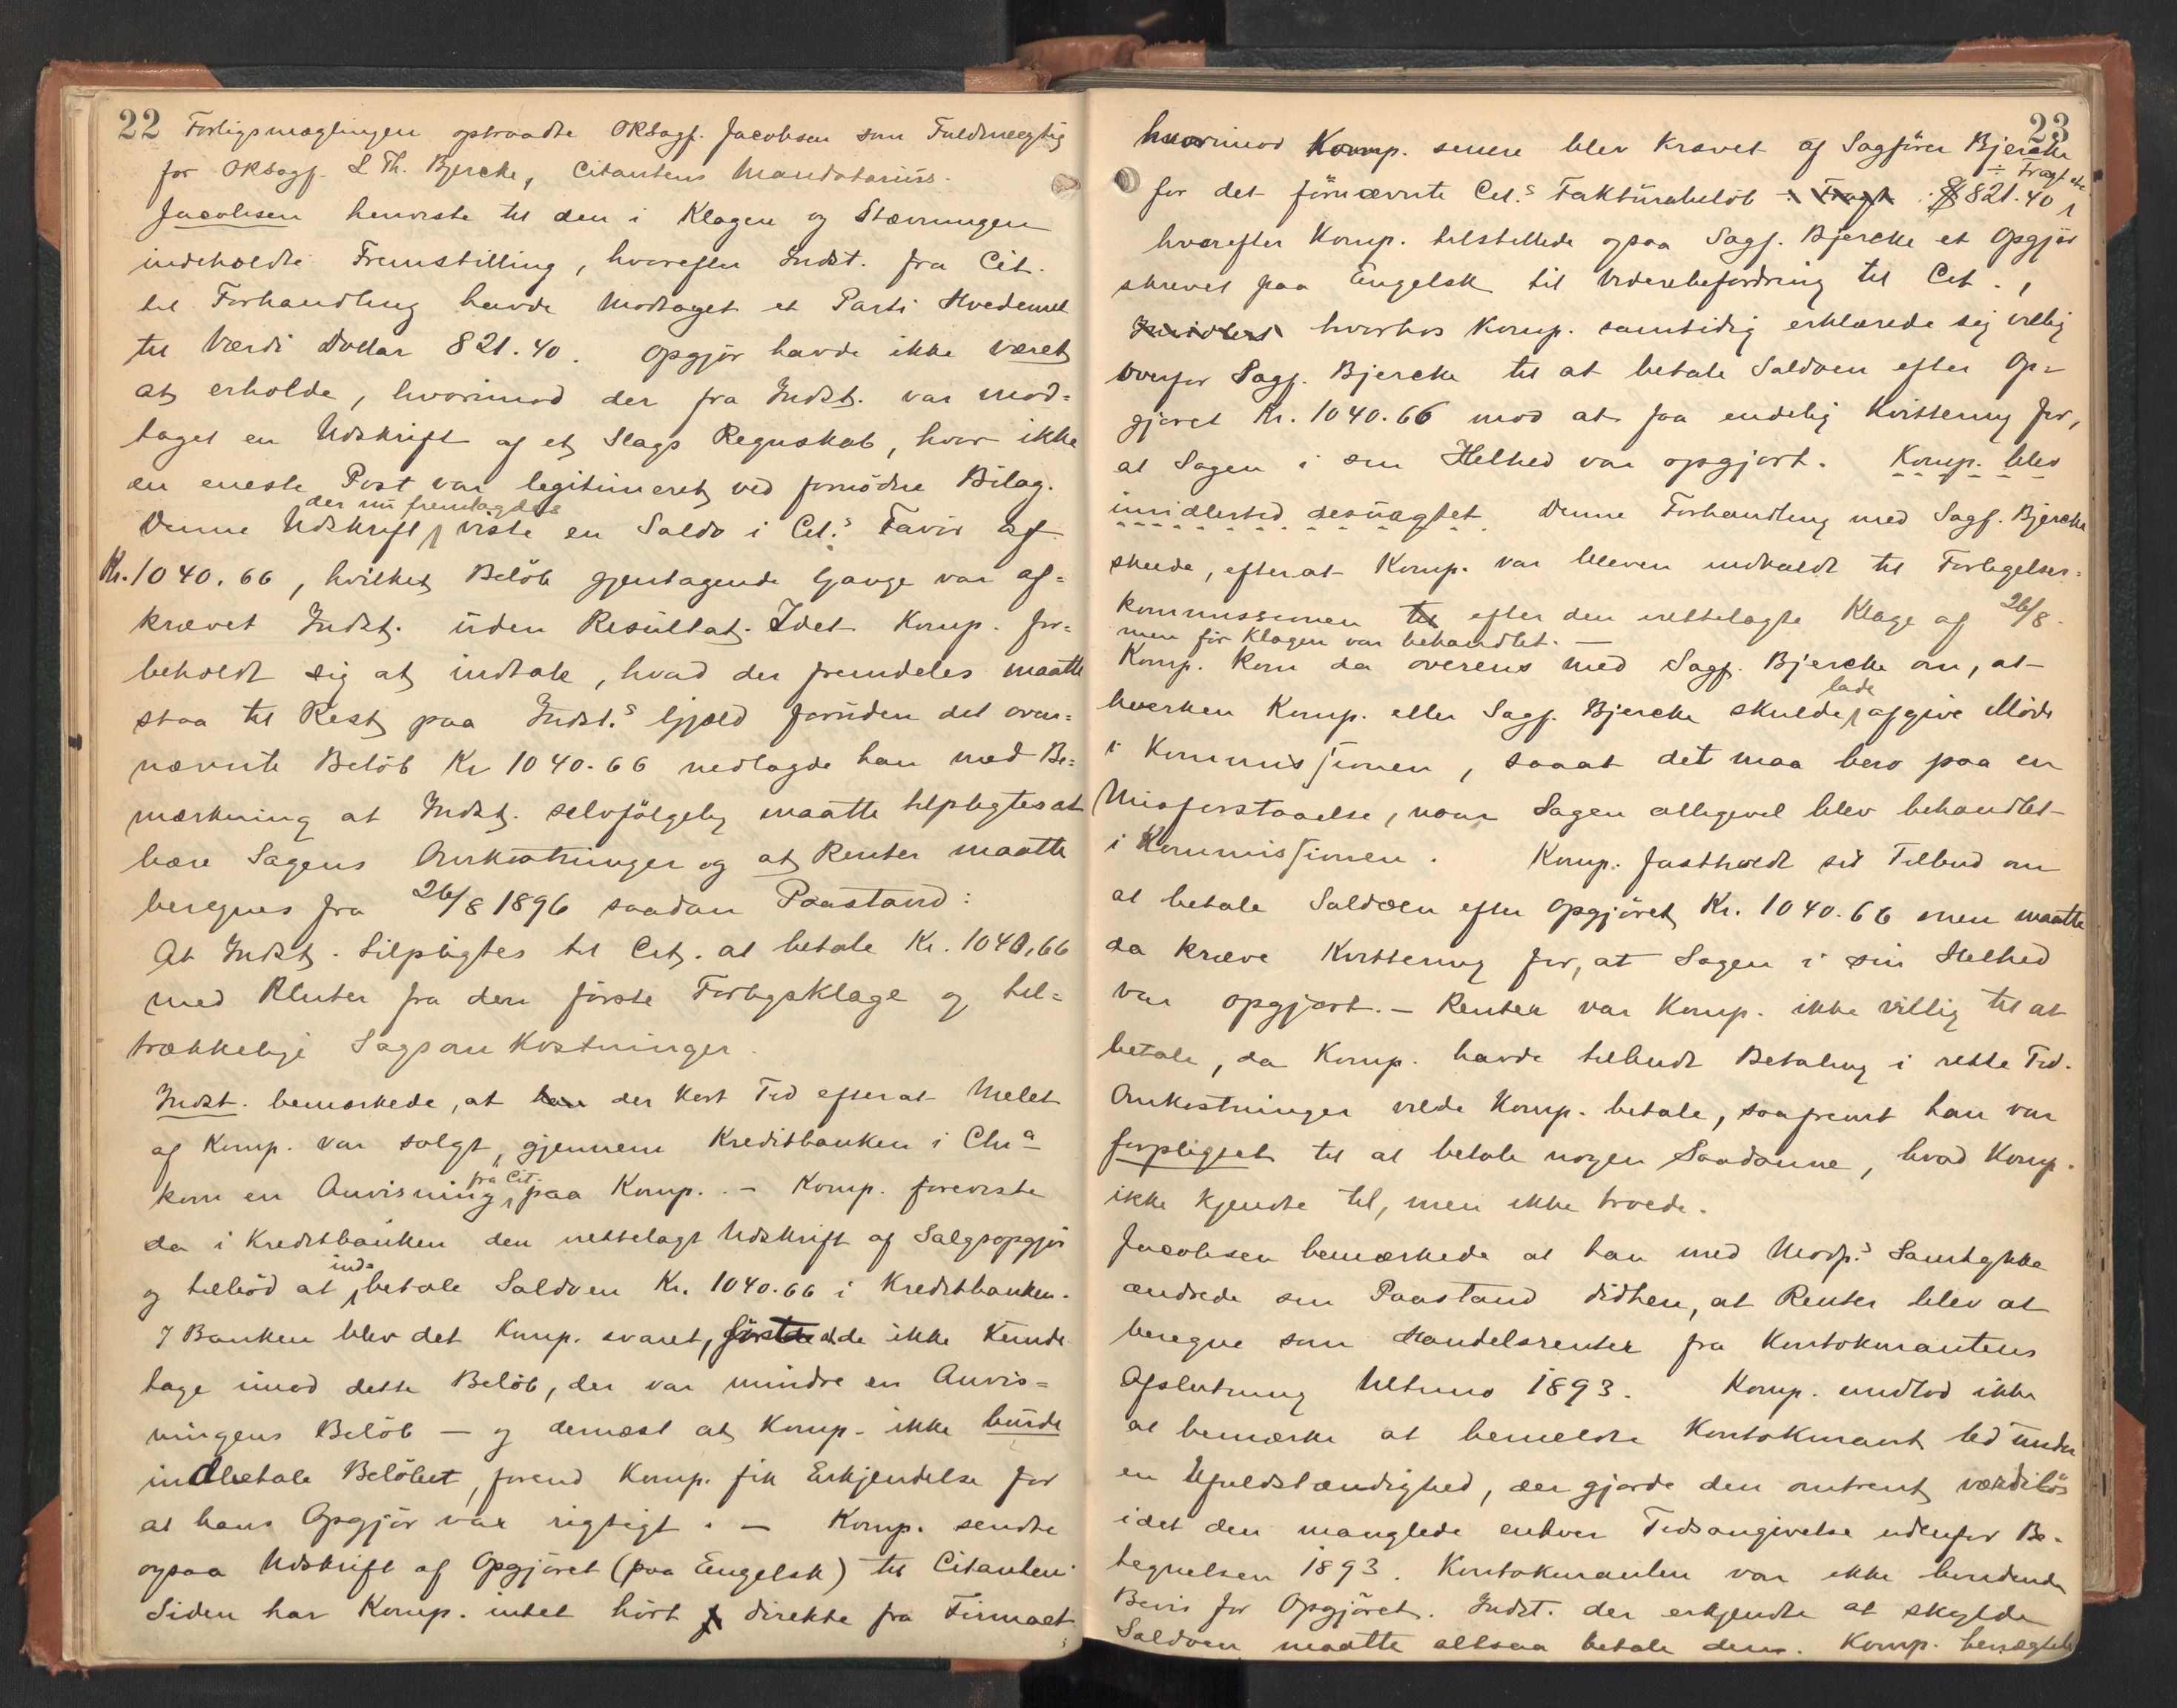 22 Forligsmæglingen optraadte ORSagf. Jacobsen som Fuldmægtig
for ORSagf. L Th. Bjercke, Citantens Mandatarius.
Jacobsen henviste til den i Klagen og Stævningen
indeholdte Fremstilling, hvorefter Indst. fra Cit.
til Forhandling havde modtaget et Parti Hvedemel
til Værdi Dollar 821.40. Opgjör havde ikke været
at erholde, hvorimod der fra Indst. var mod=
taget en Udskrift af et Slags Regnskab, hvor ikke
en eneste Post var legitimeret ved fornödne Bilag.
der nu fremlagdes
Denne Udskrift viste en Saldo i Cit.s Favör af
Kr. 1040.66, hvilket Belöb gjentagende Gange var af=
krævet Indst. uden Resultat. Idet Komp. for=
beholdt sig at indtale, hvad der fremdeles maatte
staa til Rest paa Indst.s Gjæld foruden det oven=
nævnte Belöb Kr 1040.66 nedlagde han med Be=
mærkning at Indst. selvfölgelig maatte tilpligtes at
bære Sagens Omkostninger og at Renter maatte
beregnes fra 26/8 1896 saadan Paastand:
At Indst. tilpligtes til Cit. at betale Kr. 1040,66
med Renter fra den förste Forligsklage og til=
trækkelige Sagsomkostninger.
Indst. bemærkede, at han der kort Tid efterat Melet
af Komp. var solgt, gjennem Kreditbanken i Chra
fra Cit.
kom en Anvisning paa Komp. – Komp. foreviste
da i Kreditbanken den rettelagt Udskrift af Salgsopgjör
ind=
og tilböd at betale Saldoen Kr. 1040.66 i Kreditbanken.
I Banken blev det Komp. svaret, först at de ikke kunde
tage imod dette Belöb, der var mindre en Anvis=
ningens Belöb – og dernæst at Komp. ikke burde
indbetale Belöbet, forend Komp. fik Erkjendelse for
at hans Opgjör var rigtigt. – Komp. sendte
ogsaa Udskrift af Opgjöret (paa Engelsk) til Citanten.
Siden har Komp. intet hört f direkte fra Firmaet
23
hvorimod Komp. senere blev krævet af Sagförer Bjercke
÷ Fragt etc
for det förnævnte Cit.s Faktürabelöb ÷ Fragt $ 821.40,
hvorefter Komp. tilstillede ogsaa Sagf. Bjercke et Opgjör
skrevet paa Engelsk til Viderebefordring til Cit.,
Imidlert hvorhos Komp. samtidig erklærede sig villig
overfor Sagf. Bjercke til at betale Saldoen efter Op=
gjöret Kr. 1040.66 mod at faa endelig Kvittering for,
at Sagen i sin Helhed var opgjort. Komp. blev
imidlertid desuagtet. Denne Forhandling med Sagf. Bjercke
skeede, efterat Komp. var bleven indkaldt til Forligelses=
kommissionen til efter den rettelagte Klage af 26/8.
men för Klagen var behandlet. –
Komp. kom da overens med Sagf. Bjercke om, at
lade
hverken Komp. eller Sagf. Bjercke skulde afgive Möde
i Kommissionen, saaat det maa bero paa en
Misforstaaelse, naar Sagen alligevel blev behandlet
i Kommissionen. Komp. fastholdt sit Tilbud om
at betale Saldoen efter Opgjöret Kr. 1040.66 men maatte
da kræve Kvittering for, at Sagen i sin Helhed
var opgjort. – Renter var Komp. ikke villig til at
betale, da Komp. havde tilbudt Betaling i rette Tid.
Omkostninger vilde Komp. betale, saafremt han var
forpligtet til at betale nogen Saadanne, hvad Komp.
ikke kjendte til, men ikke troede.
Jacobsen bemærkede at han med Modp.s Samtykke
ændrede sin Paastand didhen, at Renter blev at
beregne som Handelsrenter fra Kontokurantens
Afslutning Ultimo 1893. Komp. undlod ikke
at bemærke at bemeldte Kontokurant led under
en Ufuldstændighed, der gjorde den omtrent værdilös
idet den manglede enhver Tidsangivelse udenfor Be=
tegnelsen 1893. Kontokuranten var ikke bindende
Bevis for Opgjöret. Indst. der erkjendte at skylde
Saldoen maatte altsaa betale den. Komp. benægtede